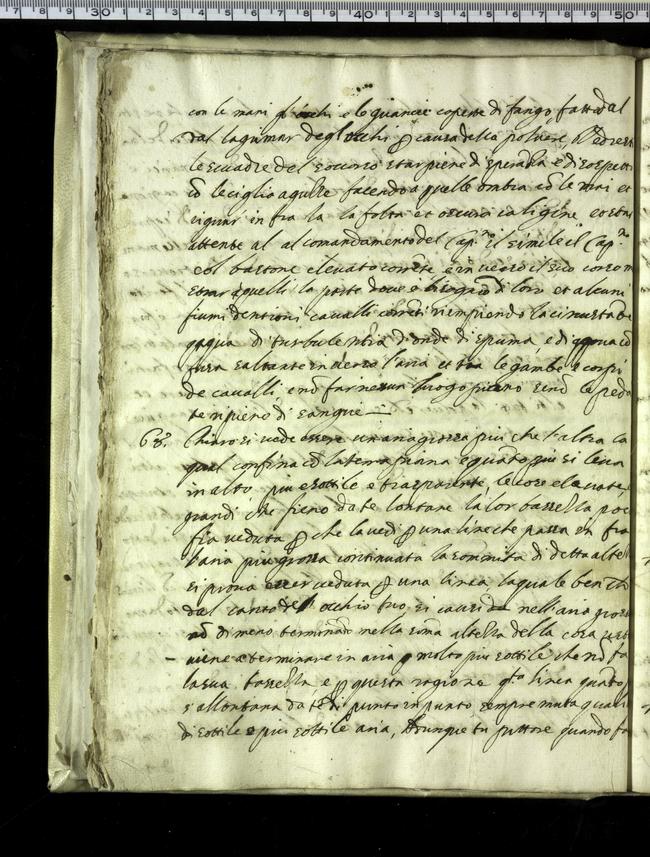 40 50
con le mani gl'occhi e le guancie coperte di fango fatto dal
dal lagrimar degl'occhi p causa della polvere, Vedresti
le squadre del socorso star piene di speranza e di sospetto
cō le ciglia aguzze facendo a quelle ombra cō le mani et
riguar in fra la la folta et oscura caligine, e star
attente al al comandamento del Cap.no il simile il Cap.no
col bastone elevato corrēte e in verso il socorso m
strar a quelli la parte dove è bisogno di loro et alcuni
fiumi dentroui cavalli corrēti riempiendo la circustāte
acqua di turbulentia d'onde di spuma, e di acqua cō
fusa saltante inverso l'aria et tra le gambe e corpi
de cavalli, e nō far nesun luogo piano se nō le peda
te ripiene di sangue
68. Chiaro si vede essere un aria grossa piu che l'altra la
qual confina cō la terra piana e quāto piu si leva
in alto, piu è sottile e trasparente, le cose elevate,
grandi che sieno da te lontane la lor bassezza poc
fia veduta p che la vedi p una linea che passa in fra
l'aria piu grossa continuata la sommita di detta altez
si prova esser veduta p una linea la quale ben che
dal canto del occhio tuo si causi nell'aria grossa
nō di meno terminādo nella soma altezza della cosa vista
viene a terminare in aria p molto piu sottile che nō fa
la sua bassezza, e p questa ragione q.ta linea quāto p
s'allontana da te di punto in punto sempre muta quali
di sottile e piu sottile aria, Adunque tu pittore quando fa